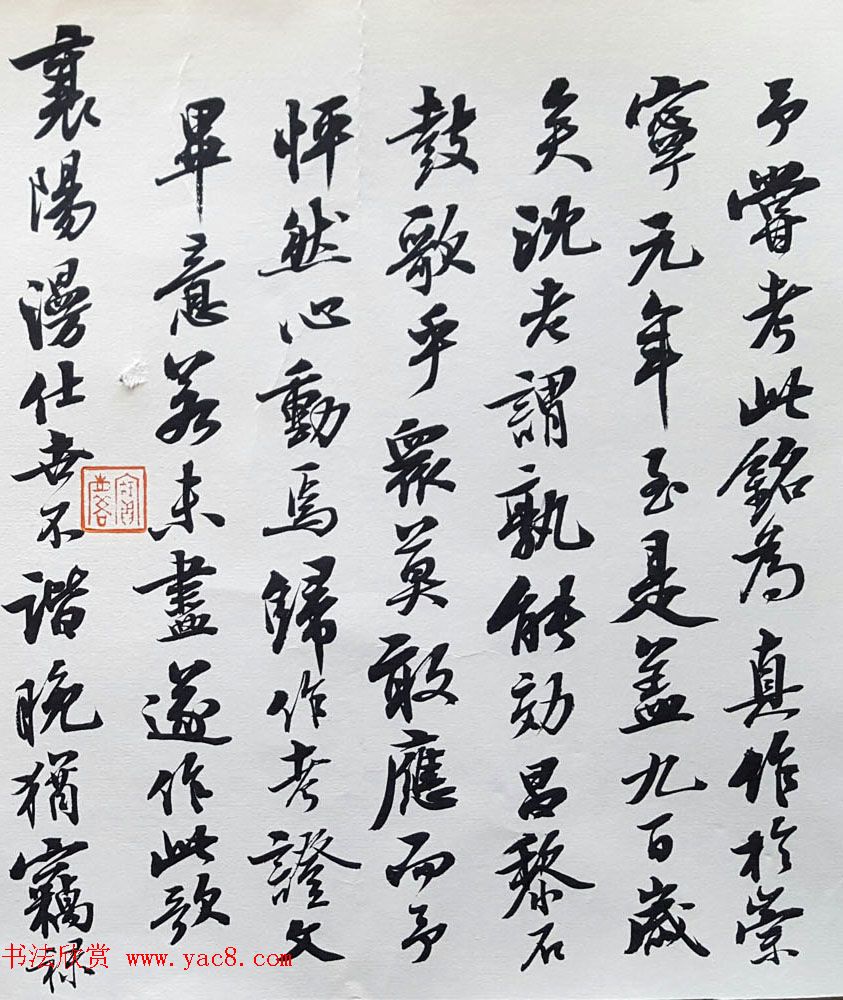 予嘗考此銘為真作於崇
寧元年至是蓋九百歲
矣沈老謂孰能効昌黎石
鼓歌乎衆莫敢應而予
怦然心動焉歸作考證文
畢意若未盡遂作此歌
襄陽漫仕世不諧晚猶竊祿
书法欣赏 www.yac8.com